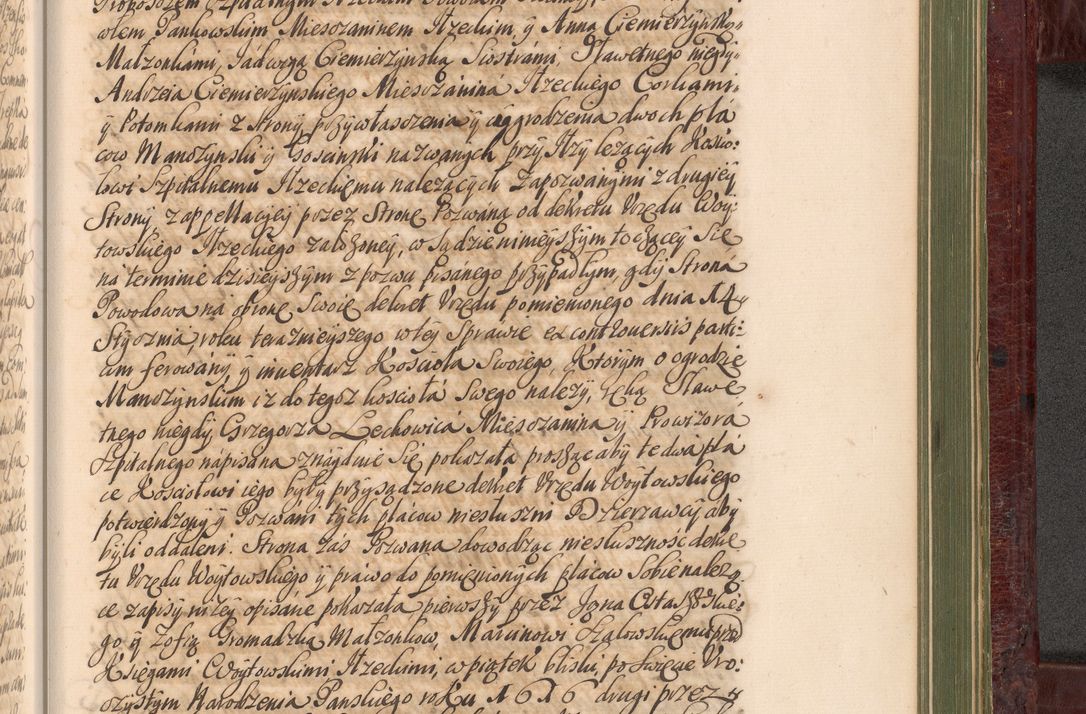 Proboszem Szpitalnym Iłzeckim Powodem
włem Pankowskim Miesczaninem Iłzeckim, y Anną Ciemierzynską
Małzonkami, Jadwigą Ciemierzynską Siostrami, Sławetnego niegdy
Andrzeia Ciemierzynskiego Miesczánina Iłzeckiego Corkami
y Potomkami z Strony, przywłasczenia y zagrodzenia dwoch plá
cow Manczynski y Gościnski nazwanych przy Iłzy lezących Kościo:
łowi Szpitalnemu Iłzeckiemu nalezących Zapozwanymi z drugiey
Strony z appellacyiey przez Stronę Pozwaną od dekretu Vrzędu Woy:
towskiego Iłzeckiego załozoney, w Sądzie ninieyszym toczącey Się
na terminie dzisieyszym z pozwu pisánego przypadłym, gdy Strona
Powodowa na obronę Swoię dekret Vrzędu pomienionego dnia 14
Stycznia, roku teraznieyszego w tey Sprawie ex controuersiis parti:
um ferowány y inwentarz Kościoła Swoiego, Ktorym o ogrodzie
Manczynskim iz do tegoz kościoła Swego nalezy, ręką Sławe
tnego niegdy, Grzegorza Lechowicá Miesczanina y Prowizora
Szpitalnego nápisana znayduie Się pokazała prosząc aby te dwa plá
ce Kosciołowi iego były przysądzone dekret Vrzędu Woytowskiego
potwierdzony y Pozwani tych placow niesłuszni Dzierzawcy aby
byli oddaleni. Strona zás Pozwana dowodząc niesłuszność dekre
tu Vrzędu Woytowskiego y práwo do pomienionych placow Sobie nalezą
ce zapisy nizey opisane pokazała pierwszy przez Jana
go y Zofią Gromadzką Małzonkow, Marcinowi Szalowskiemu przed
Xsięgami Woytowskimi Iłzeckimi, w piątek bliski, po Swięcie Vro:
czystym Narodzenia Panskiego roku 1676 drugi przez